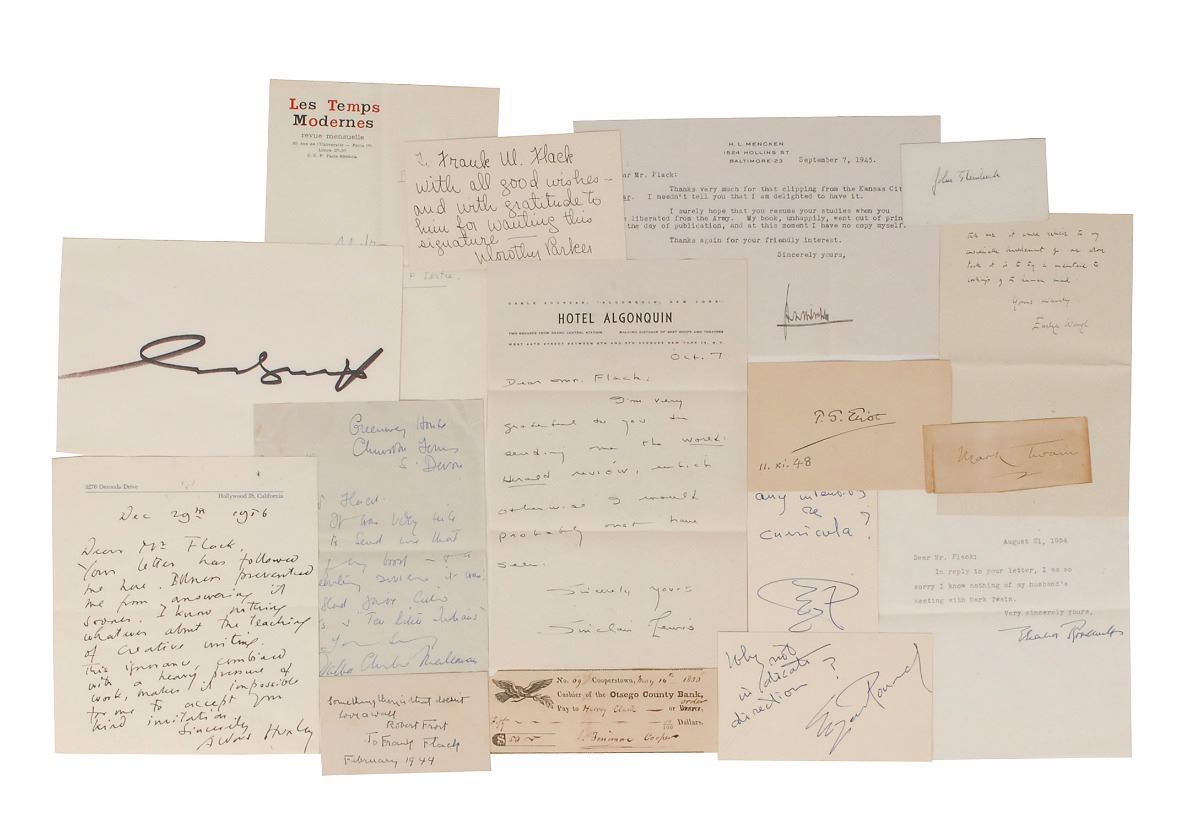 Les Temps
Modernes
revue mensuelle
To Frank W. Flack
with all good wishes —
and with gratitude to
him for wanting this
signature
Dorothy Parker
H. L. MENCKEN
1524 HOLLINS ST.
BALTIMORE-23
September 7, 1945.
Mr. Flack:
Thanks very much for that clipping from the Kansas Cit
I needn't tell you that I am delighted to have it.
I surely hope that you resume your studies when you
liberated from the Army. My book, unhappily, went out of prin
the day of publication, and at this moment I have no copy myself.
Thanks again for your friendly interest.
Sincerely yours,
John Steinbeck
Yours sincerely
Evelyn Waugh
HOTEL ALGONQUIN
Oct. 7
Dear Mr. Flack:
I'm very
grateful to you for
sending me the World
Herald review, which
otherwise I would
probably not have
seen.
Sincerely yours
Sinclair Lewis
T. S. Eliot
11. xi. 48
Mark Twain
Greenway House
Churston Ferrers
S. Devon
Flack.
It was very nice
to send me that
of my book
Ten Little Indians
Agatha Christie Mallowan
any
re
curricula?
August 21, 1954
Dear Mr. Flack:
In reply to your letter, I am so
sorry I know nothing of my husband's
meeting with Mark Twain.
Very sincerely yours,
Eleanor Roosevelt
3276 Deronda Drive
Hollywood 28, California
Dec 29th 1956
Dear Mr Flack,
Your letter has followed
me here. Illness prevented
me from answering it
sooner. I know nothing
whatever about the teaching
of creative writing.
This ignorance, combined
with a heavy pressure of
work, makes it impossible
for me to accept your
kind invitation
Sincerely
Aldous Huxley
Something there is that doesnt
love a wall
Robert Frost
To Frank Flack
February 1944
No. 09 Cooperstown, May 1835
Cashier of the Otsego County Bank,
Pay to Henry Clark — or order Bearer.
Dollars.
J. Fenimore Cooper
Why not
indicate
direction?
Ezra Pound